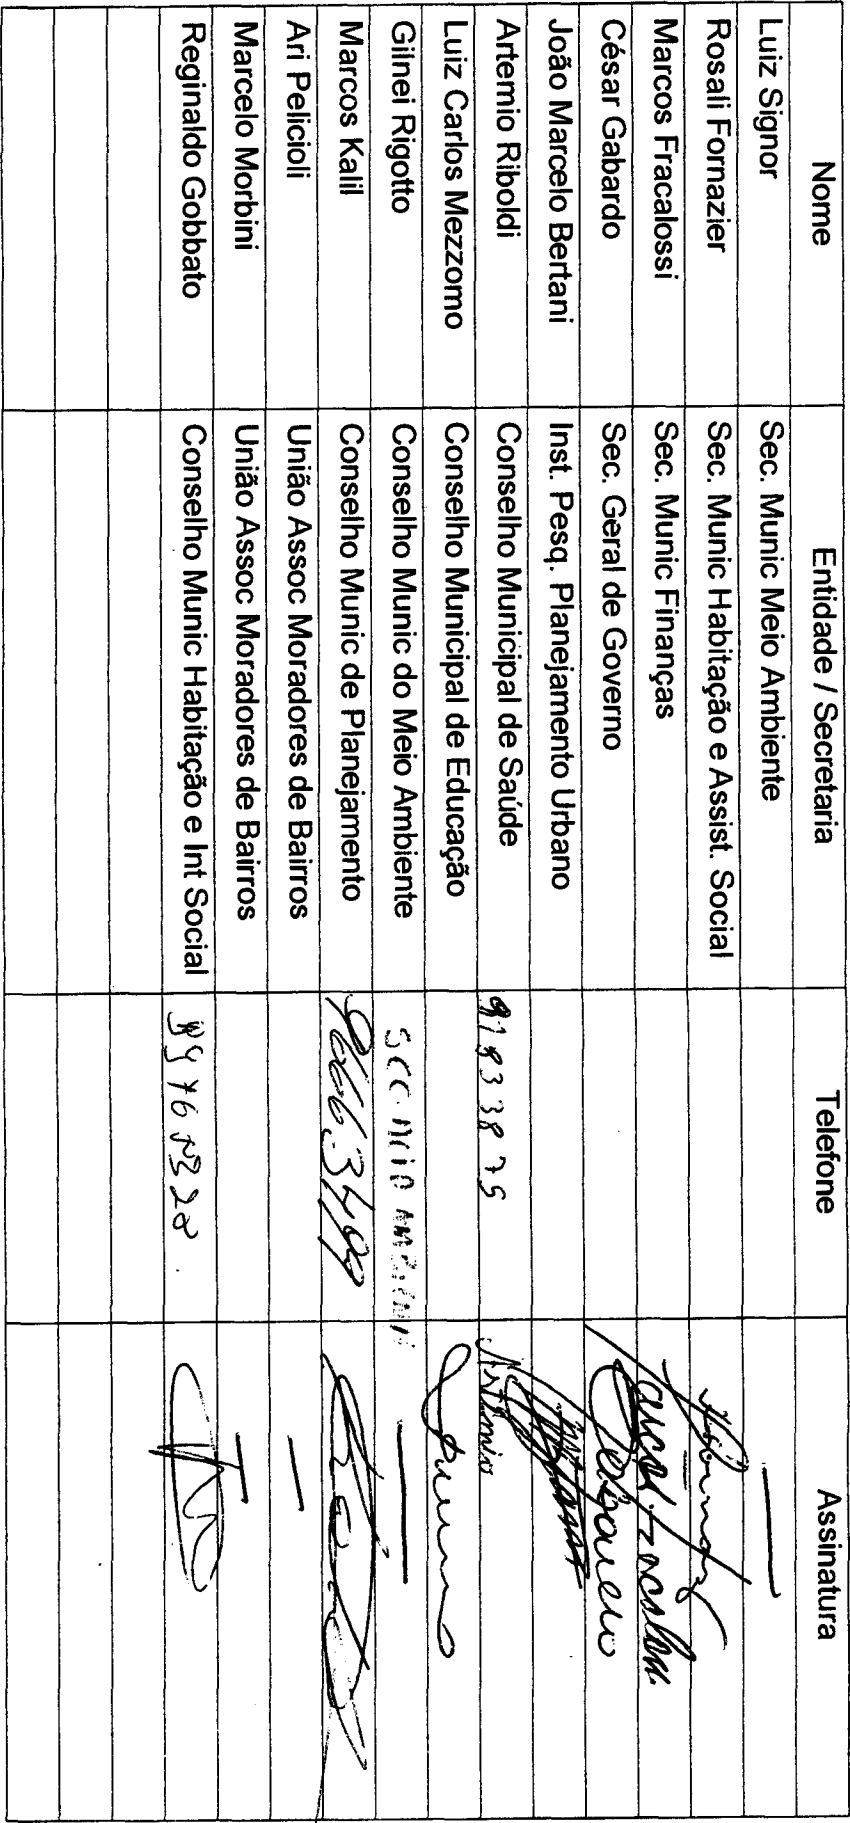 Nome Entidade / Secretaria Telefone Assinatura
Luiz Signor Sec. Munic Meio Ambiente —
Rosali Fornazier Sec. Munic Habitação e Assist. Social
Marcos Fracalossi Sec. Munic Finanças
César Gabardo Sec. Geral de Governo
João Marcelo Bertani Inst. Pesq. Planejamento Urbano
Artemio Riboldi Conselho Municipal de Saúde 91833875 Artemio
Luiz Carlos Mezzomo Conselho Municipal de Educação
Gilnei Rigotto Conselho Munic do Meio Ambiente —
Marcos Kalil Conselho Munic de Planejamento
Ari Pelicioli União Assoc Moradores de Bairros —
Marcelo Morbini União Assoc Moradores de Bairros —
Reginaldo Gobbato Conselho Munic Habitação e Int Social